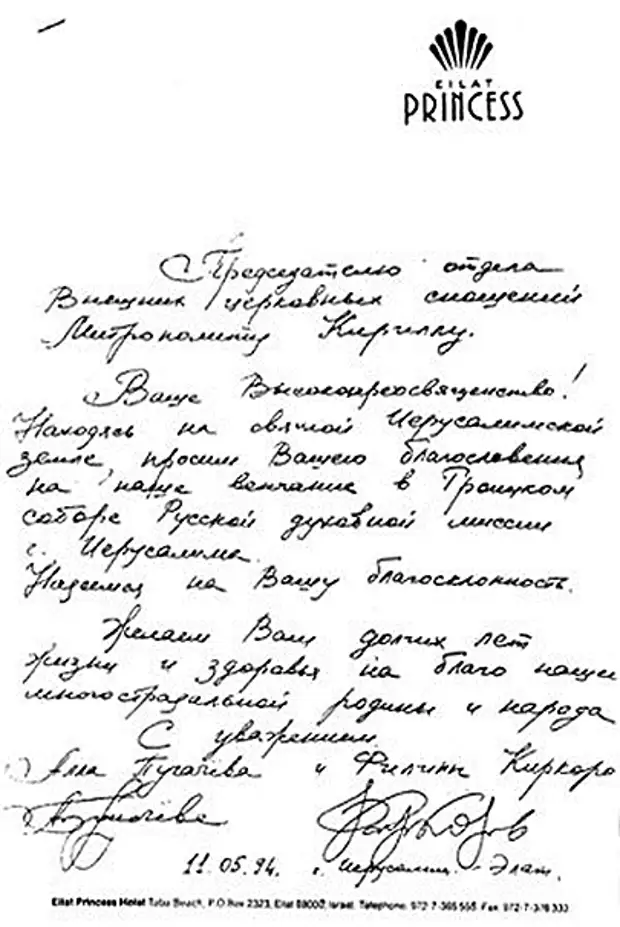 EILAT
PRINCESS
Председателю отдела
Внешних церковных сношений
Митрополиту Кириллу.
Ваше Высокопреосвященство!
Находясь на святой Иерусалимской
земле, просим Вашего благословения
на наше венчание в Троицком
соборе Русской духовной миссии
г. Иерусалима.
Надеемся на Вашу благосклонность.
Желаем Вам долгих лет
жизни и здоровья на благо нашей
многострадальной родины и народа
С уважением
Алла Пугачёва и Филипп Киркоро
Пугачёва
11.05.94. г. Иерусалим - Элат.
Eilat Princess Hotel Taba Beach, P.O.Box 2323, Eilat 88000, Israel. Telephone: 972-7-365555 Fax: 972-7-376333